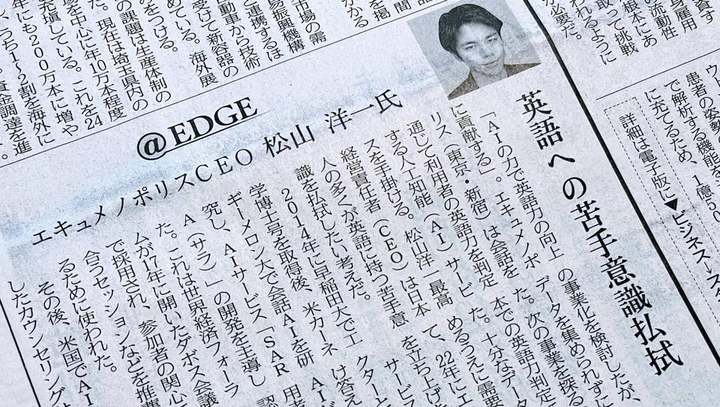 市場の需
易振興機構
と連携するほ
動車から技術
受けて新容器の
めている。海外展
をつける。
課題は生産体制の
現在は埼玉県内の
を中心に年10万本程度
充填している。これを24
年にも200万本に増や
うち1〜2割を海外に
資金調達を進
身雇用
流動性
根本にあ
取って挑戦
われるように
要だ。
@EDGE
エキュメノポリスCEO 松山 洋一氏
英語への苦手意識払拭
「AIの力で英語力の向上
に貢献する」。エキュメノポ
リス（東京・新宿）は会話を
通じて利用者の英語力を判定
する人工知能（AI）サービ
スを手掛ける。松山洋一最高
経営責任者（CEO）は日本
人の多くが英語に持つ苦手意
識を払拭したい考えだ。
2014年に早稲田大で工
学博士号を取得後、米カーネ
ギーメロン大で会話AIを研
究し、AIサービス「SAR
A（サラ）」の開発を主導し
た。これは世界経済フォーラ
ムが17年に開いたダボス会議
で採用され、参加者の関心
合うセッションなどを推
るために使われた。
その後、米国でAI
したカウンセリング
の事業化を検討したが、
データを集められずに
た。次の事業を探る
本での英語力判定
た。十分なデータ
めるうえに需要
て、22年にエ
を立ち上げ
サービス
クターと
は答え
AI
用者
認
患者の姿勢
で解析する機能を
に充てるため、1億5
詳細は電子版に▼ビジネス→ス